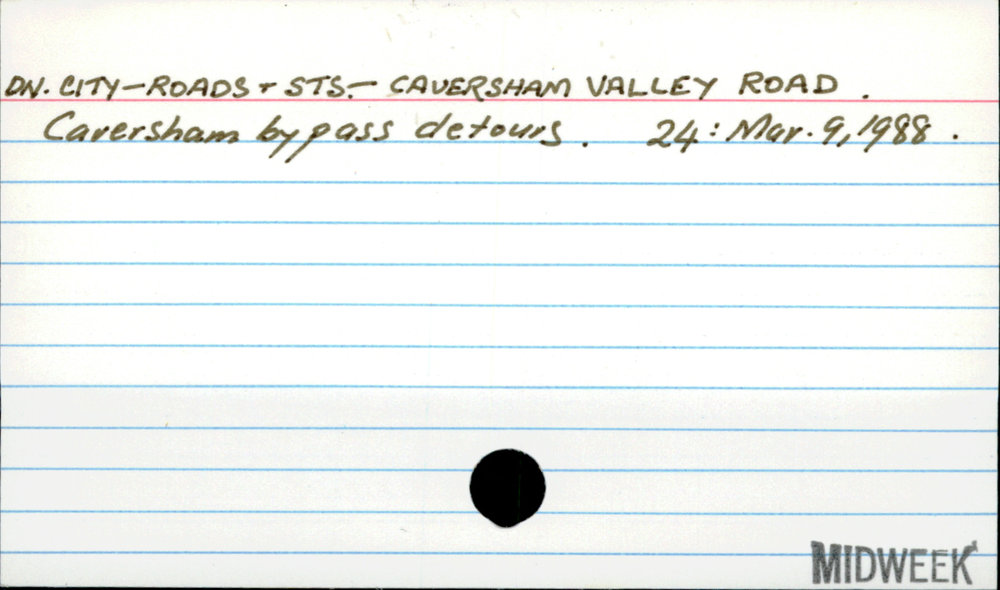 DN. CITY-ROADS + STS.- CAVERSHAM VALLEY ROAD.
Caversham bypass detours. 24: Mar. 9, 1988.
MIDWEEK